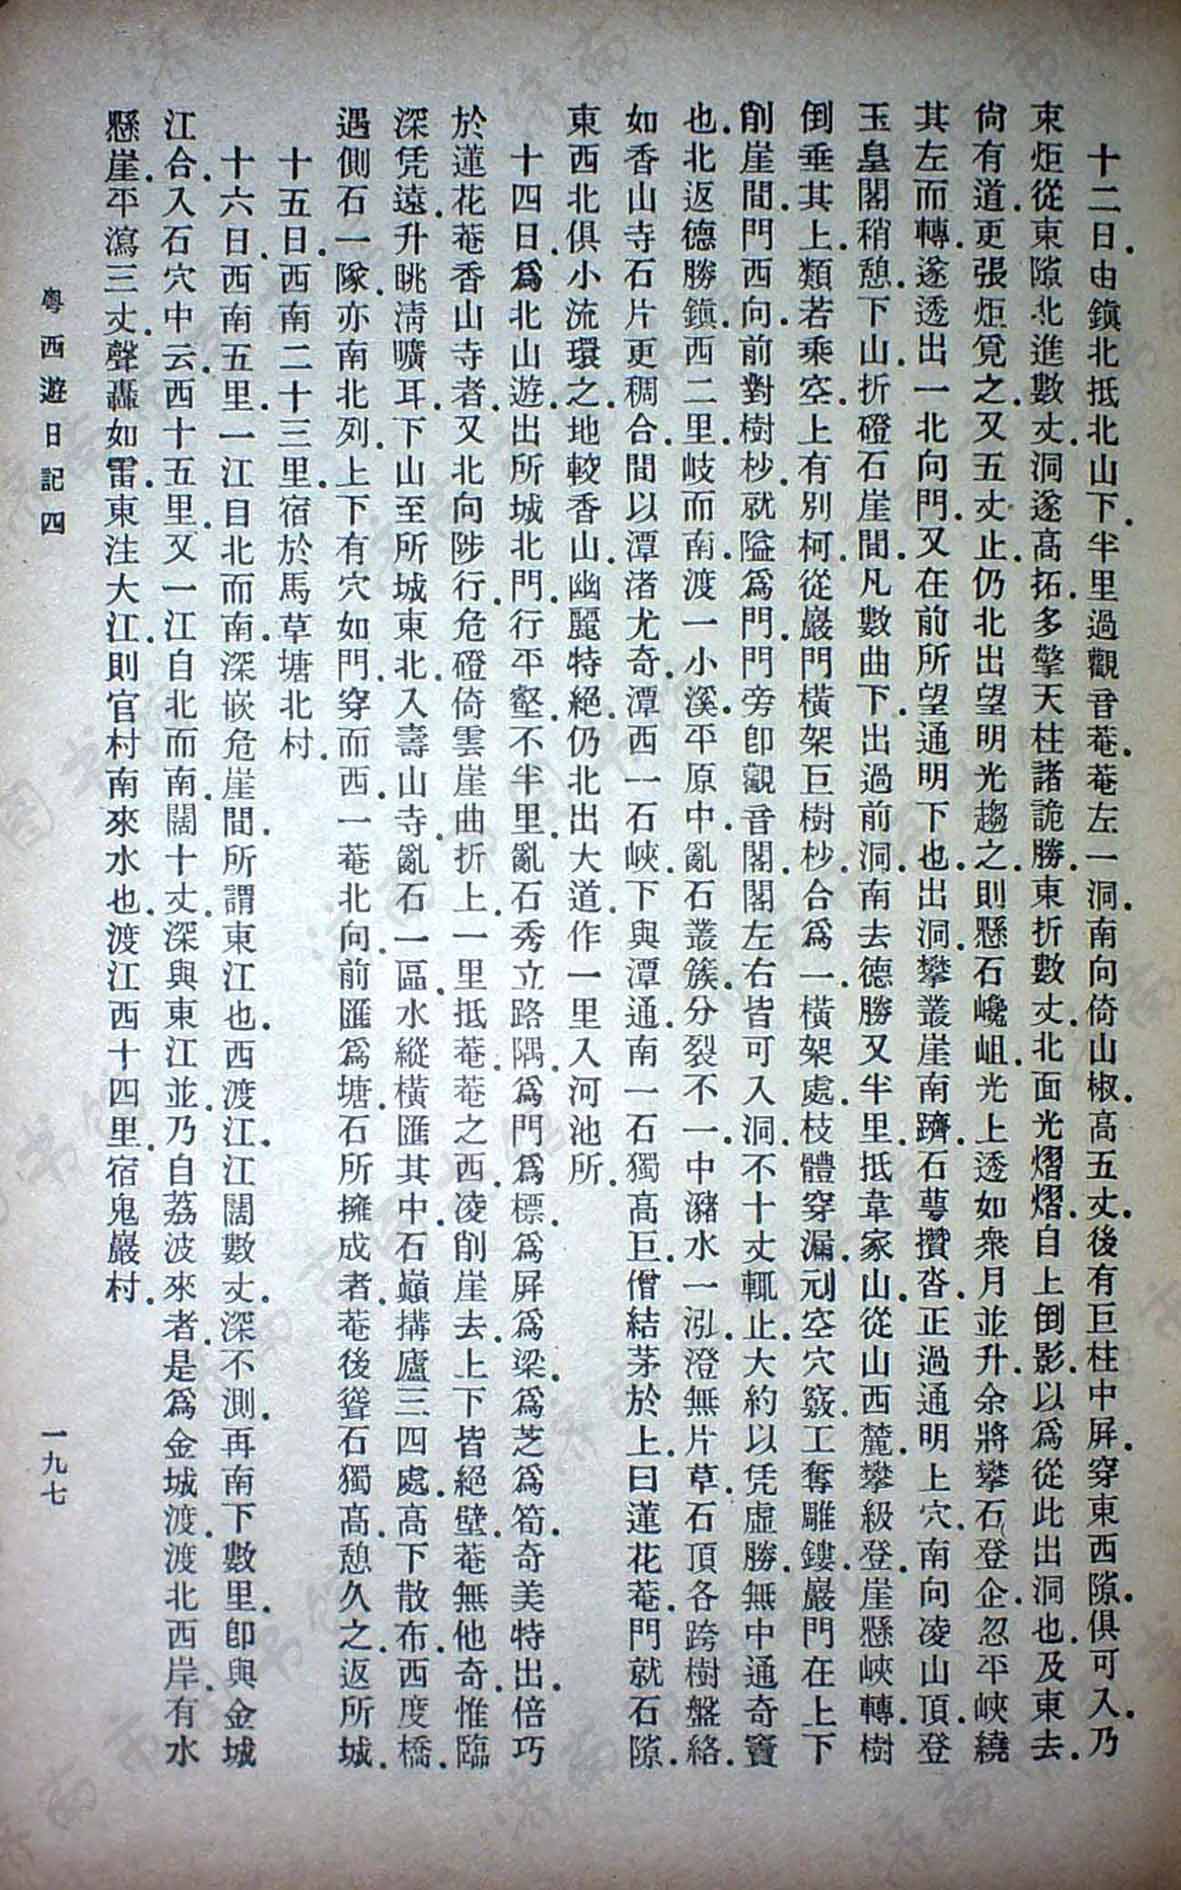 十二日．由鎮北抵北山下．半里過觀音菴．菴左一洞．南向倚山椒．高五丈．後有巨柱中屏．穿東西隙．俱可入．乃
束炬從東隙北進數丈．洞遂高拓．多擎天柱諸詭勝．東折數丈．北面光熠熠．自上倒影．以爲從此出洞也．及東去．
尙有道．更張炬覓之．又五丈止．仍北出望明光趨之．則懸石巉岨．光上透如衆月並升．余將攀石登企．忽平峽繞
其左而轉．遂透出一北向門．又在前所望通明下也．出洞．攀叢崖南躋．石蕚攢沓．正過通明上穴．南向凌山頂．登
玉皇閣稍憩．下山．折磴石崖間．凡數曲下．出過前洞．南去德勝又半里．抵韋家山．從山西麓攀級登．崖懸峽轉．樹
倒垂其上．類若乘空．上有別柯．從巖門橫架巨樹杪．合爲一．橫架處．枝體穿漏．刓空穴竅．工奪雕鏤．巖門在上下
削崖間．門西向．前對樹杪．就隘爲門．門旁卽觀音閣．閣左右皆可入洞．不十丈輒止．大約以凭虛勝．無中通奇竇
也．北返德勝鎮．西二里．岐而南．渡一小溪．平原中．亂石叢簇．分裂不一．中瀦水一泓．澄無片草．石頂各跨樹盤絡．
如香山寺石片更稠合．間以潭渚尤奇．潭西一石峽．下與潭通．南一石獨高巨．僧結茅於上．曰蓮花菴．門就石隙．
東西北俱小流環之．地較香山．幽麗特絕．仍北出大道．作一里入河池所．
十四日．爲北山遊．出所城北門．行平壑．不半里．亂石秀立路隅．爲門爲標．爲屏爲梁．爲芝爲筍．奇美特出．倍巧
於蓮花菴香山寺者．又北向陟行．危磴倚雲崖曲折上．一里抵菴．菴之西．凌削崖去．上下皆絕壁．菴無他奇．惟臨
深凭遠．升眺淸曠耳．下山至所城東北．入壽山寺．亂石一區．水縱橫匯其中．石巔搆廬三四處．高下散布．西度橋．
遇側石一隊．亦南北列．上下有穴如門．穿而西．一菴北向．前匯爲塘．石所擁成者．菴後聳石獨高．憩久之．返所城．
十五日．西南二十三里．宿於馬草塘北村．
十六日．西南五里．一江自北而南．深嵌危崖間．所謂東江也．西渡江．江闊數丈．深不測．再南下數里．卽與金城
江合．入石穴中云．西十五里．又一江自北而南．闊十丈．深與東江並．乃自荔波來者．是爲金城渡．渡北西岸．有水
懸崖．平瀉三丈．聲轟如雷．東注大江．則官村南來水也．渡江西十四里．宿鬼巖村．
粵西遊日記四
一九七